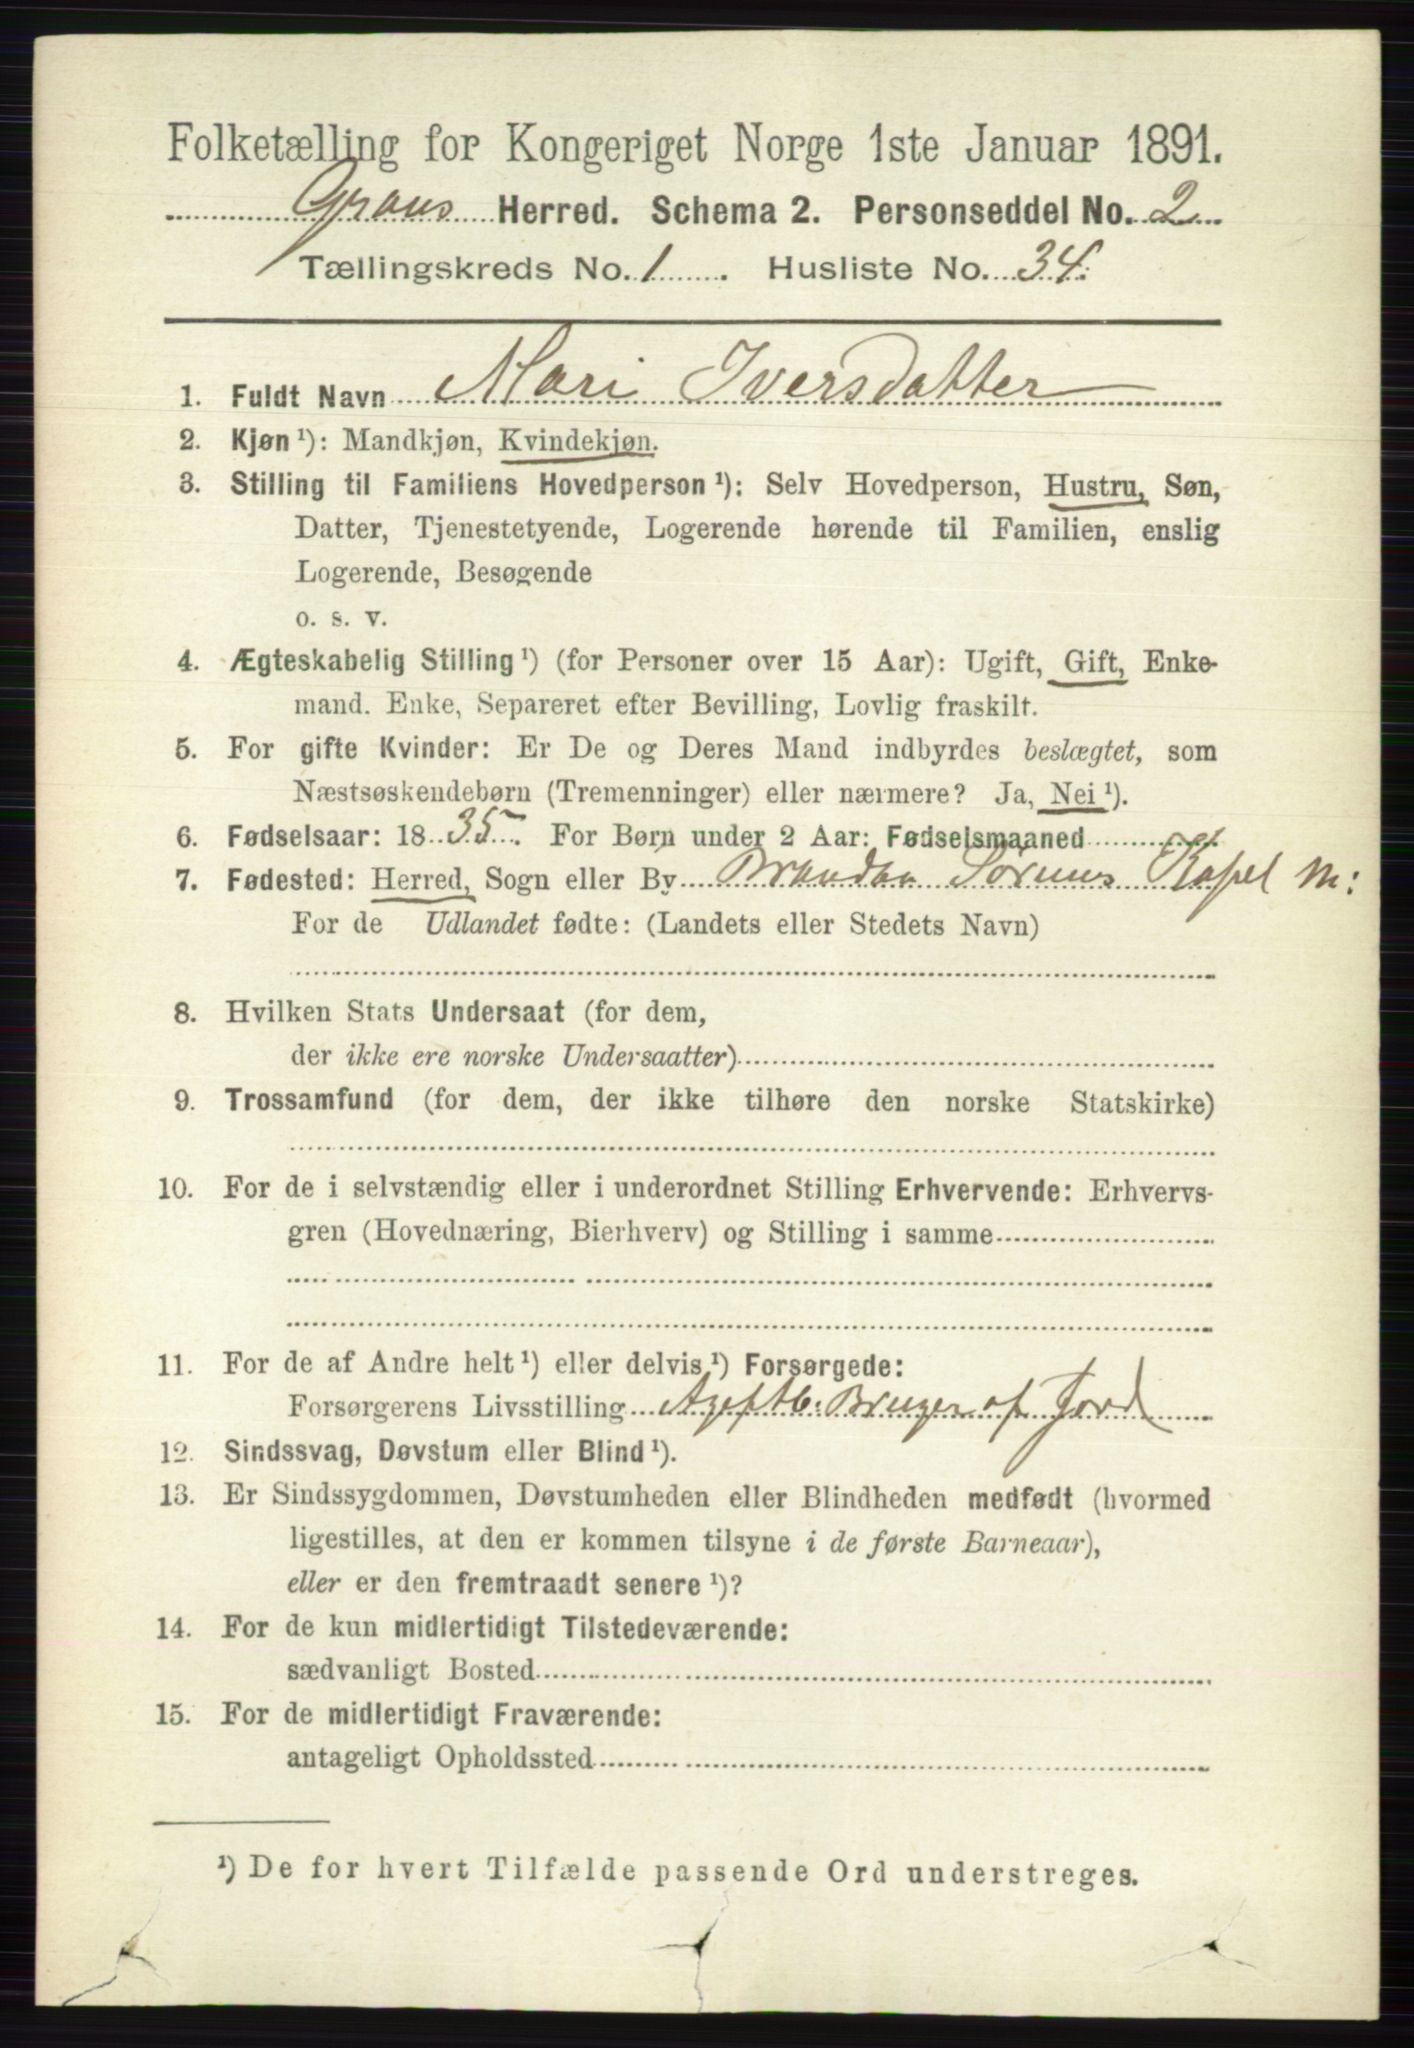 Folketælling for Kongeriget Norge 1ste Januar 1891.
Grans Herred. Schema 2. Personseddel No. 2
Tællingskreds No. 1. Husliste No. 34.
1. Fuldt Navn Mari Iversdatter
2. Kjøn ¹): Mandkjøn, Kvindekjøn.
3. Stilling til Familiens Hovedperson ¹): Selv Hovedperson, Hustru, Søn,
Datter, Tjenestetyende, Logerende hørende til Familien, enslig
Logerende, Besøgende
o. s. v.
4. Ægteskabelig Stilling ¹) (for Personer over 15 Aar): Ugift, Gift, Enke-
mand. Enke, Separeret efter Bevilling, Lovlig fraskilt.
5. For gifte Kvinder: Er De og Deres Mand indbyrdes beslægtet, som
Næstsøskendebørn (Tremenninger) eller nærmere? Ja, Nei ¹).
6. Fødselsaar: 1835. For Børn under 2 Aar: Fødselsmaaned
7. Fødested: Herred, Sogn eller By Brandbu Sörums Kapel
For de Udlandet fødte: (Landets eller Stedets Navn)
8. Hvilken Stats Undersaat (for dem,
der ikke ere norske Undersaatter)
9. Trossamfund (for dem, der ikke tilhøre den norske Statskirke)
10. For de i selvstændig eller i underordnet Stilling Erhvervende: Erhvervs-
gren (Hovednæring, Bierhverv) og Stilling i samme
11. For de af Andre helt ¹) eller delvis ¹) Forsørgede:
Forsørgerens Livsstilling Bruger af Jord
12. Sindssvag, Døvstum eller Blind ¹).
13. Er Sindssygdommen, Døvstumheden eller Blindheden medfødt (hvormed
ligestilles, at den er kommen tilsyne i de første Barneaar),
eller er den fremtraadt senere ¹)?
14. For de kun midlertidigt Tilstedeværende:
sædvanligt Bosted
15. For de midlertidigt Fraværende:
antageligt Opholdssted
¹) De for hvert Tilfælde passende Ord understreges.